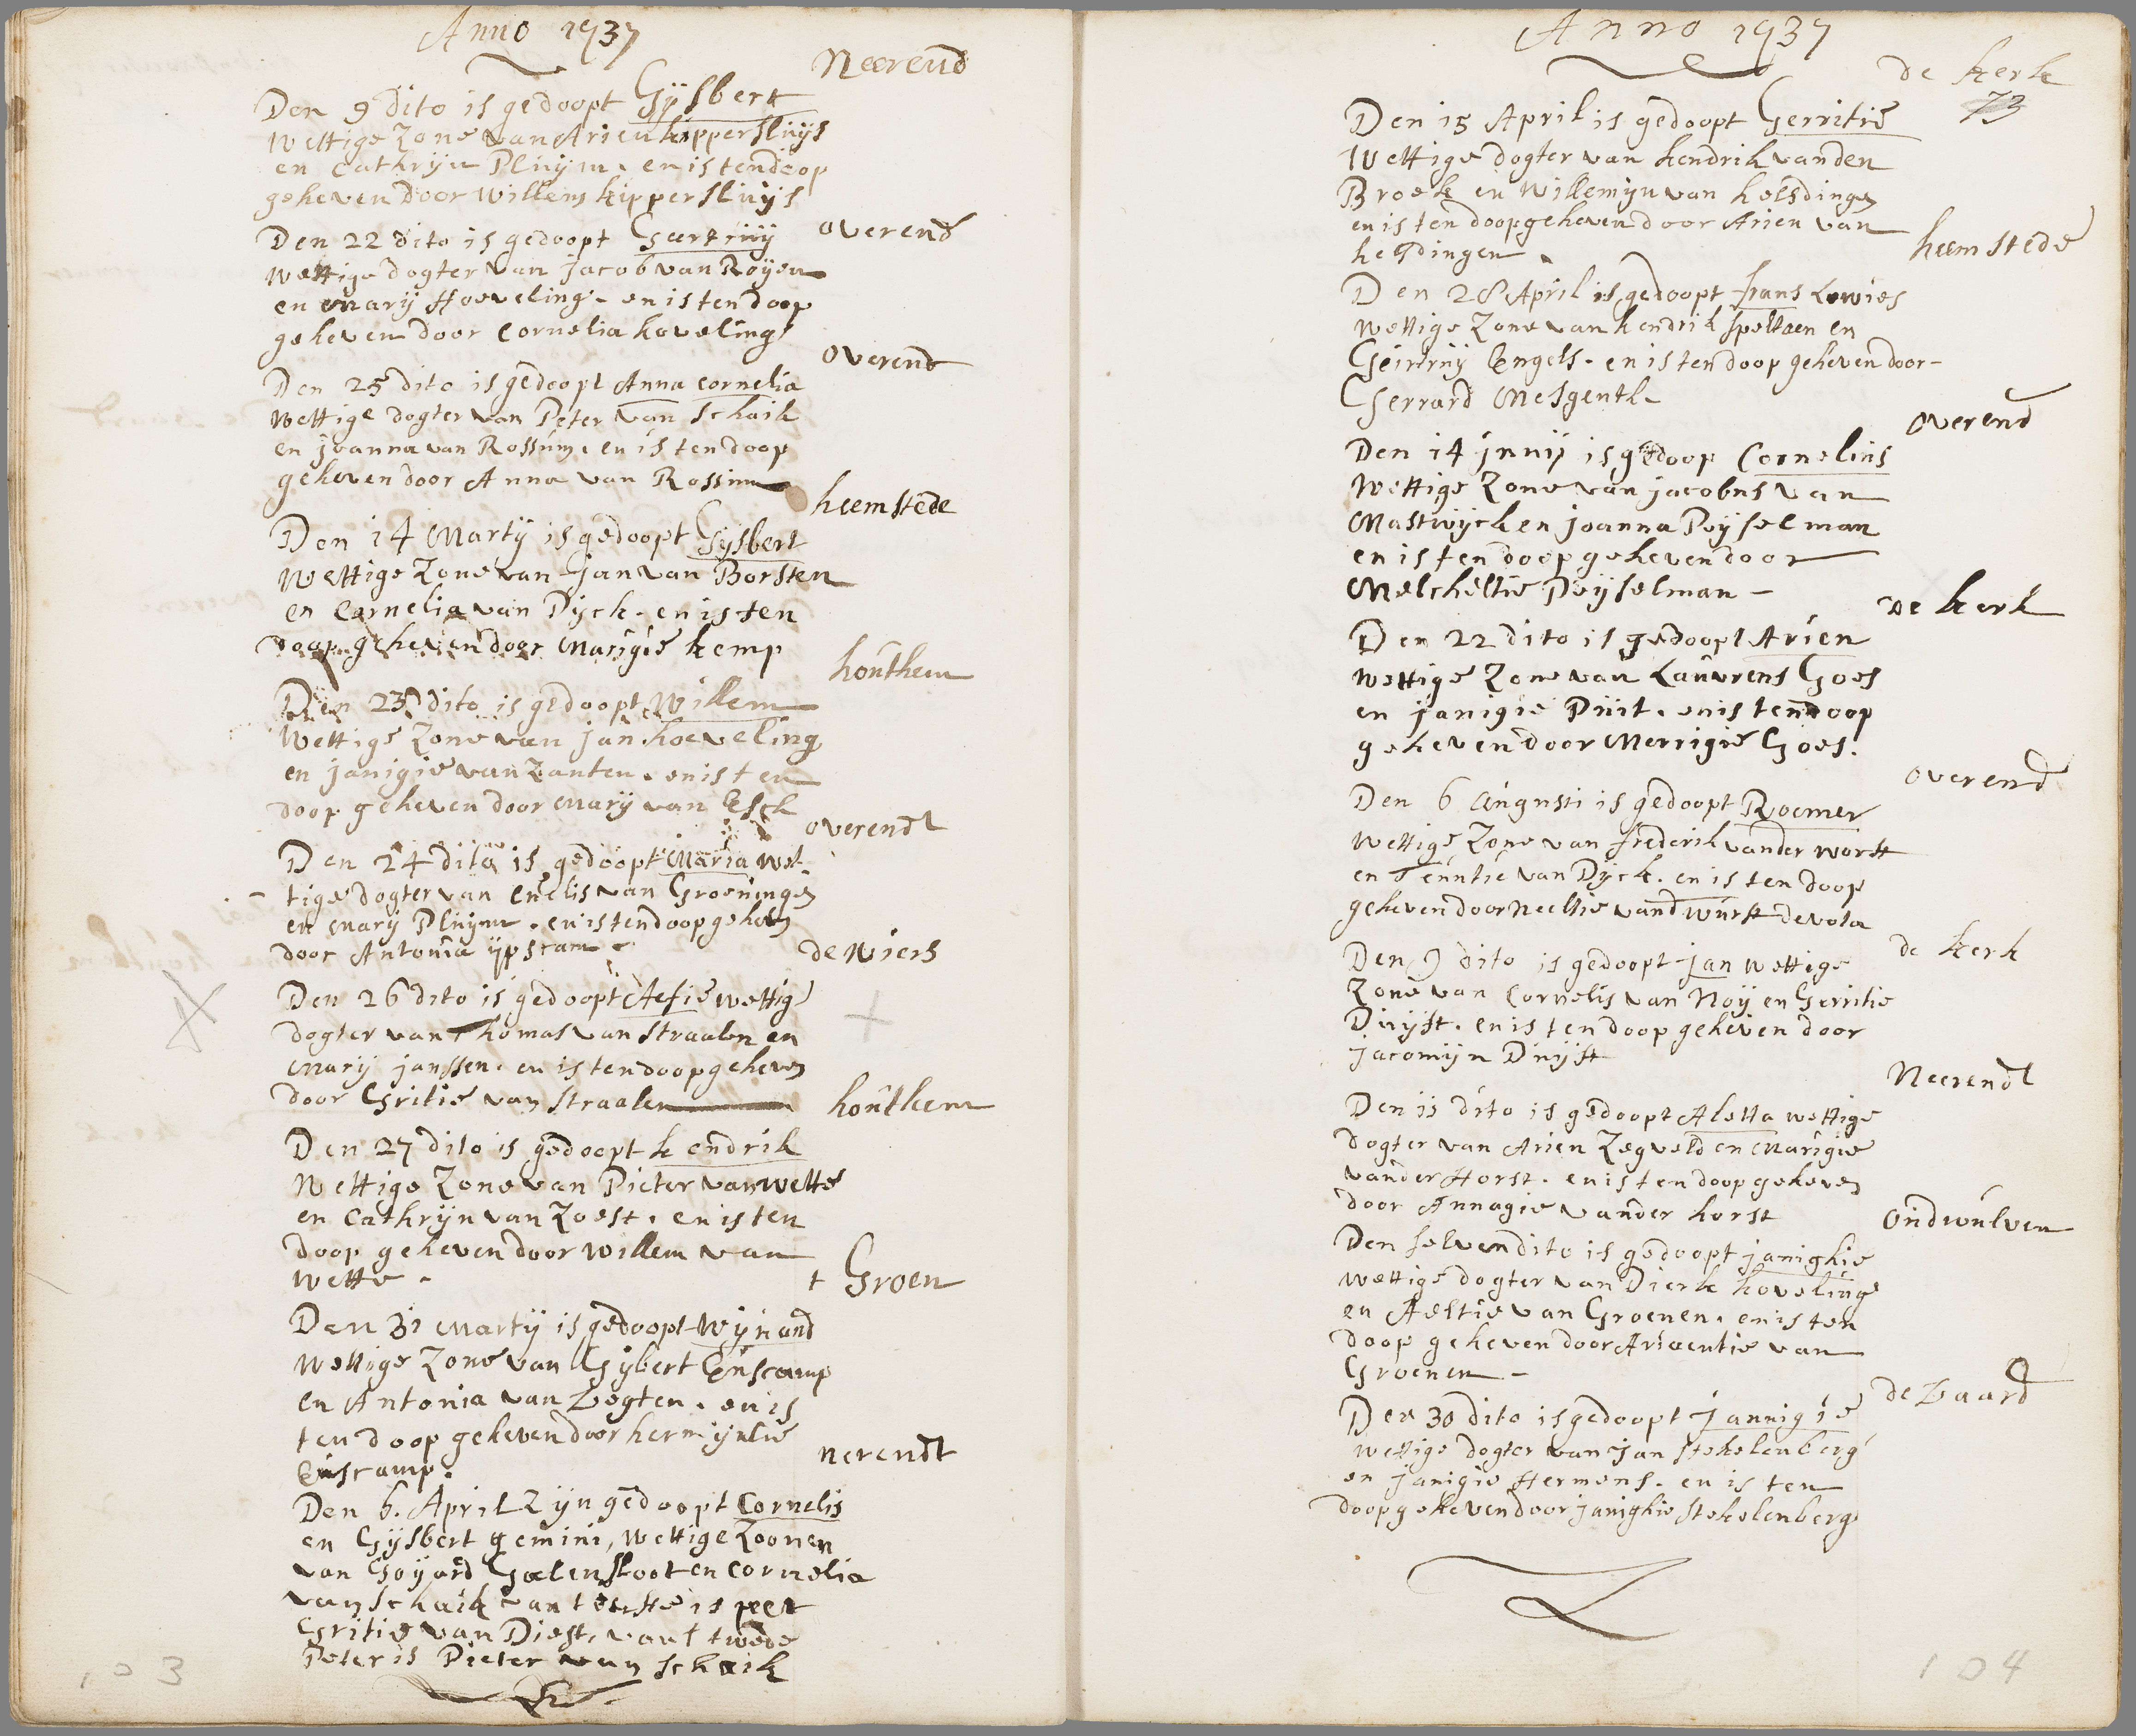 Anno 1737
Neerend
Den 9 dito is gedoopt Gijsbert
Wettige Zone van Arien kippersluijs
en Cathrijn Pluijm. en is ten doop
geheven door Willem kippersluijs
overend
Den 22 dito is gedoopt Geertruij
Wettige dogter van jacob van Roijen
en Marij Hoeveling. en is ten doop
geheven door Cornelia hoveling
overend
Den 25 dito is gedoopt Anna Cornelia
Wettige dogter van Peter van Schaik
en joanna van Rossum. en is ten doop
geheven door Anna van Rossum
heemstede
Den 14 Martij is gedoopt Gijsbert
Wettige Zone van Jan van Borsten
en Cornelia van Dijck. en is ten
doop geheven door Marigie kemp
houthem
Den 23 dito is gedoopt Willem
Wettige Zone van jan hoeveling
en janigie van Zanten. en is ten
doop geheven door Marij van Esch
overendt
Den 24 dito is gedoopt Maria wet-
tige dogter van Melis van Groeninge
en Marij Pluijm. en is ten doop geheven
door Antonia ijpscam.
de wiers
Den 26 dito is gedoopt Aefie wettige
dogter van Thomas van Straalen en
Marij janssen. en is ten doop geheven
door Gritie van Straalen
houthem
Den 27 dito is gedoopt hendrik
Wettige Zone van Pieter van wette
en Cathrijn van Zoest. en is ten
doop geheven door Willem van
wette.
t Groen
Den 31 Martij is gedoopt Wijnand
Wettige Zone van Gijbert Enscamp
en Antonia van Zegten. en is
ten doop geheven door hermijntie
Enscamp.
nerendt
Den 6. April Zijn gedoopt Cornelis
en Gijsbert gemini, Wettige Zoonen
van Goijard Galensloot en Cornelia
van Schaik van t eerste is peet
Gritie van Diest, van t twede
Peter is Pieter van Schaik
103
Anno 1737
de kerk
73
Den 15 April is gedoopt Gerritie
Wettige dogter van hendrik vanden
Broek en Willemijn van helsdingen
en is ten doop geheven door Arien van
helsdingen.
heemstede
Den 28 April is gedoopt frans Lowies
Wettige Zone van hendrik Speltaen en
Geirtruij Engels. en is ten doop geheven door
Gerrard Mesgenth.
overend
Den 14 junij is gedoop Cornelius
Wettige Zone van jacobus van
Mastwijck en joanna Peijselman
en is ten doop geheven door
Melcheltie Peijselman
de kerk
Den 22 dito is gedoopt Arien
Wettige Zone van Lauvrens Goes
en janigie Puit. en is ten doop
geheven door Merrigie Goes.
overend
Den 6 augusti is gedoopt Roemer
Wettige Zone van frederik vander worst
en Teuntie van Dijck. en is ten doop
geheven door Neeltie vand wurst devota
de kerk
Den 9 dito is gedoopt jan wettige
Zone van Cornelis van Noij en Gerritie
Duijst. en is ten doop geheven door
jacomijn Duijst
Neerendt
Den 11 dito is gedoopt Aletta wettige
dogter van Arien Zegveld en Marigie
vander Horst. en is ten doop geheven
door Annagie vander horst
oudwulven
Den selven dito is gedoopt janighie
wettige dogter van Dierk hoveling
en Aeltie van Groenen. en is ten
doop geheven door Ariaentie van
Groenen
de Waard
Den 30 dito is gedoopt jannigie
wettige dogter van jan Stekelenberg
en janigie Hermens. en is ten
doop geheven door janighie Stekelenberg
104